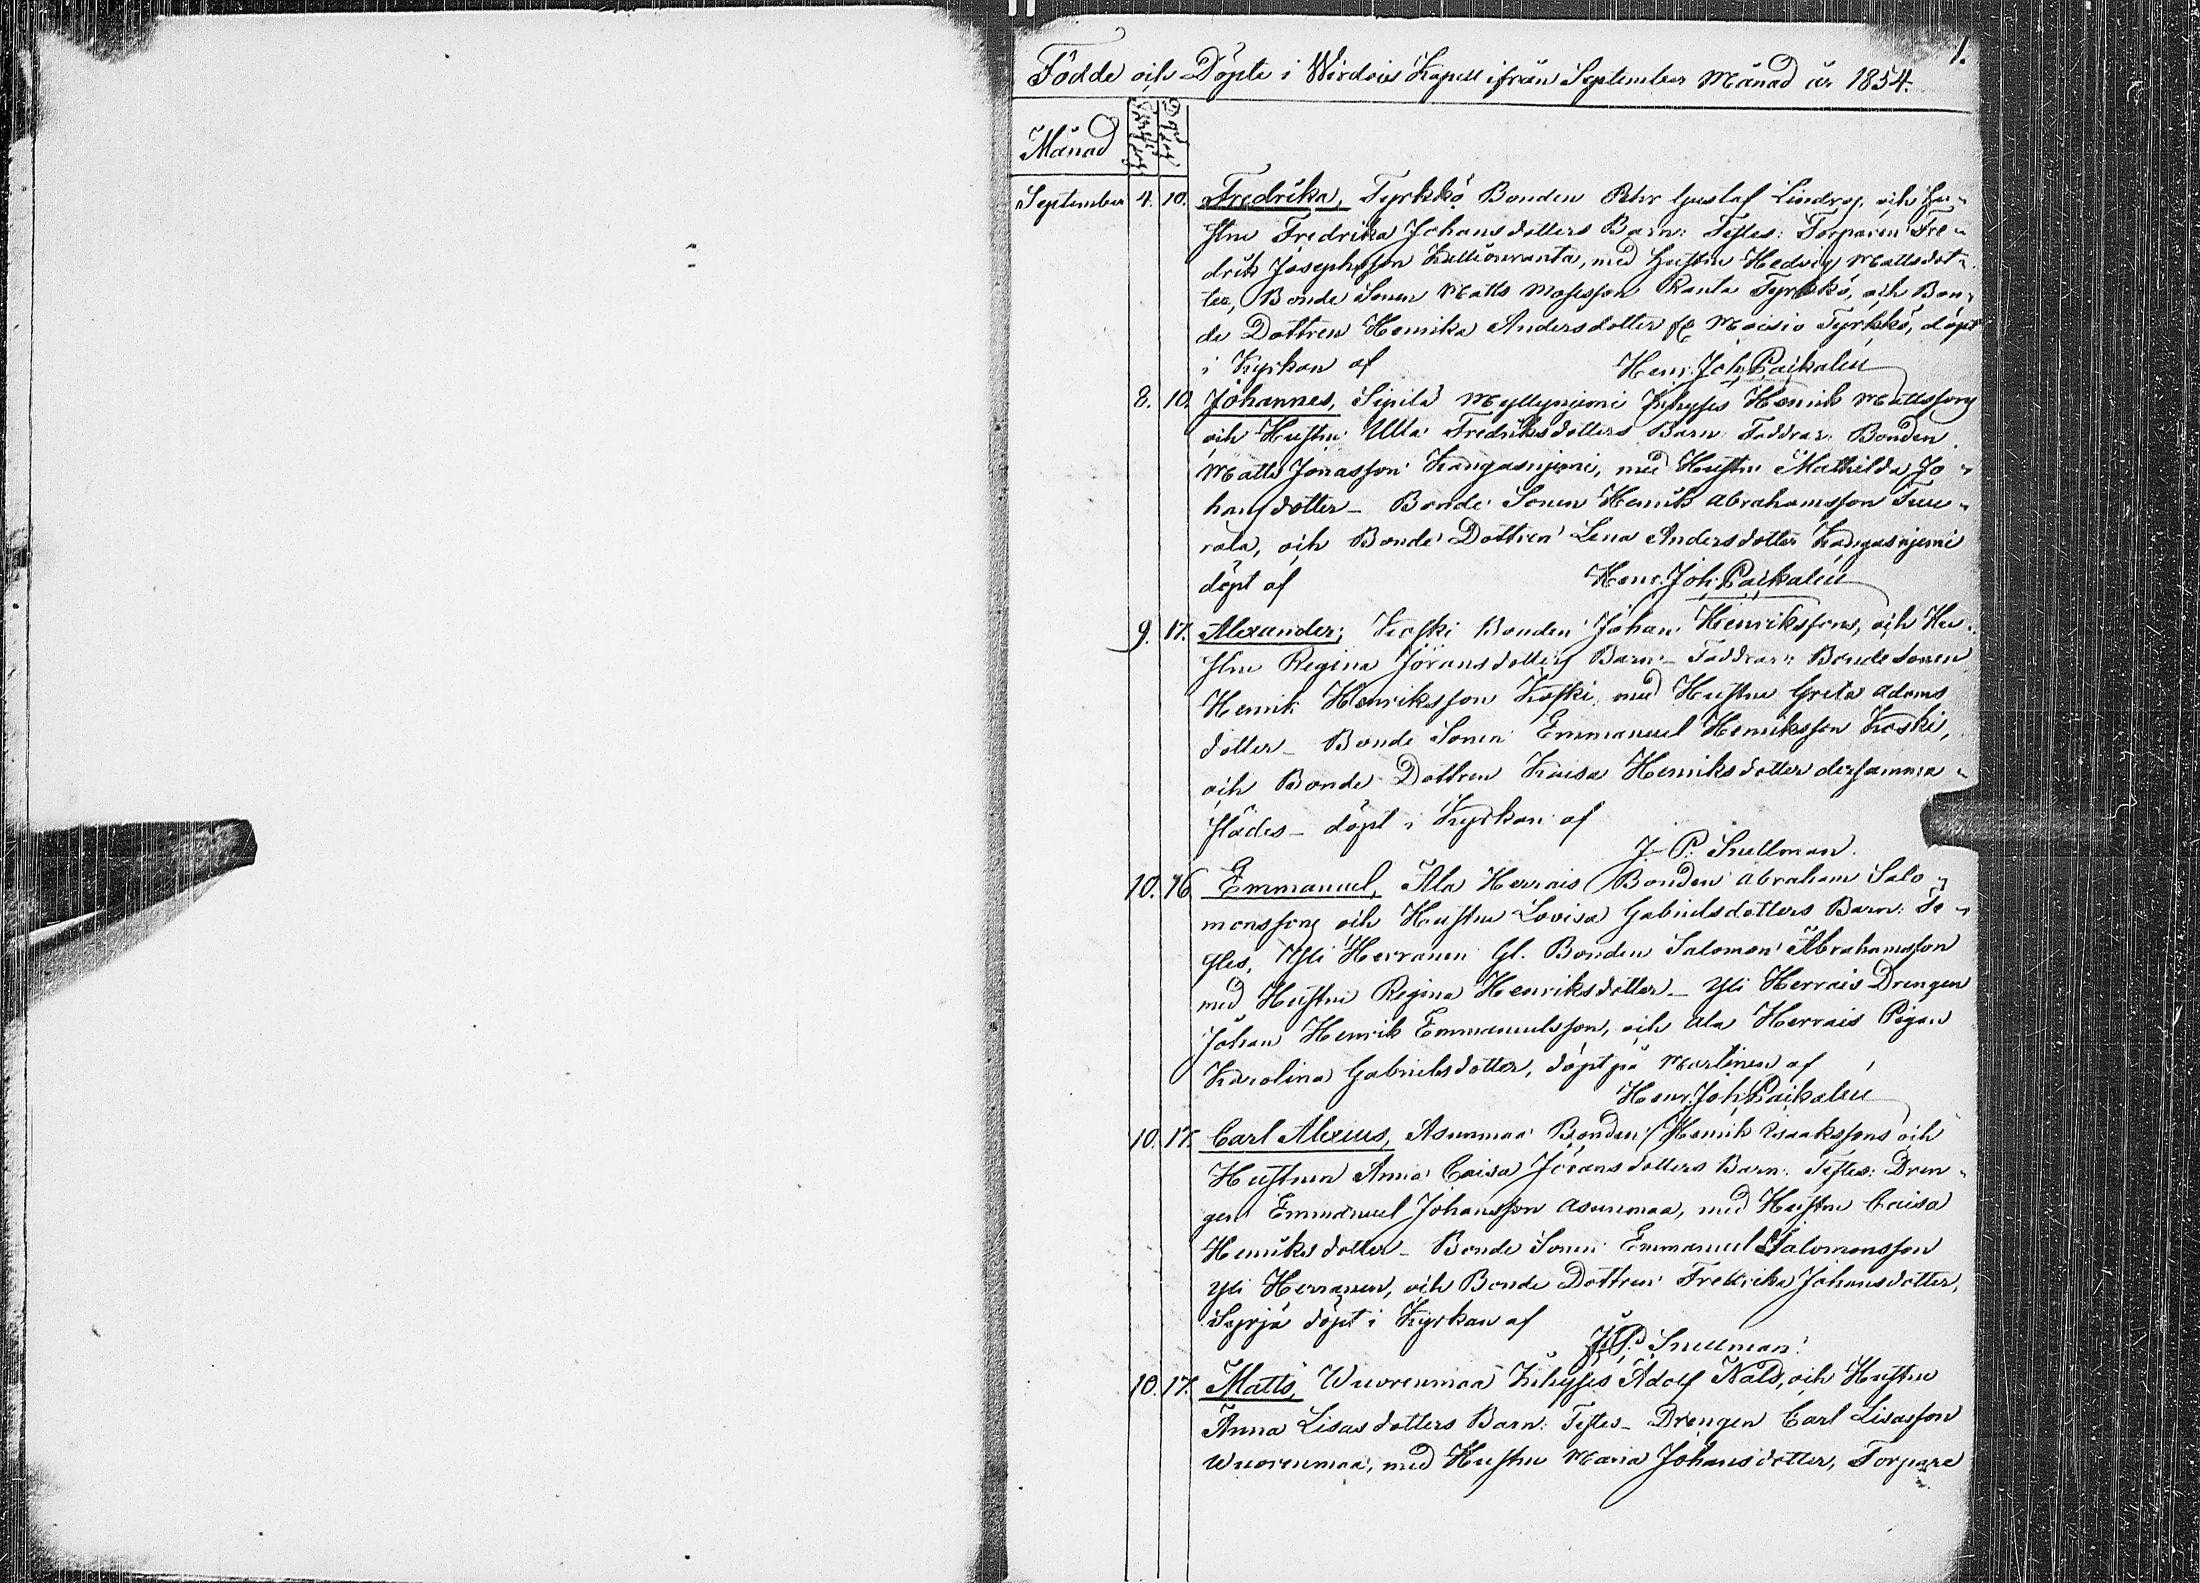 1.
Födde och Döpte i Wirdois Kapell ifrån September Månad år 1854.
Månad
September 4. 10. Fredrika, Tyrkkö Bonden Petter Gustaf Lindroj. och Hu-
strun Fredrika Johansdotters Barn: Testes: Torparen Fre-
drik Josephsson Kallioranta, med Hustru Hedvig Mattsdot-
ter, Bonde Sonen Matts Mosesson Ranta Tyrkkö, och Bon-
de Dottren Henrika Andersdotter fr Moisio Tyrkkö, döpt
i Kyrkan af Henr. Joh. Paikalén
8. 10. Johannes, Sipilä Myllyniemi Inhyses Henrik Mattssons
och Hustru Ulla Fredriksdotters Barn Faddrar: Bonden
Matts Jonasson Kangasnjemi, med Hustru Mathilda Jo-
hansdotter – Bonde Sonen Henrik Abrahamsson Tuu-
rala, och Bonde Dottren Lena Andersdotter Kangasnjemi
döpt af Henr. Joh. Paikalén
9. 17. Alexander, Koski Bonden Johan Henrikssons, och Hu-
stru Regina Jöransdotters Barn – Faddrar: Bonde Sonen
Henrik Henriksson Koski med Hustru Greta Adams
dotter – Bonde Sonen Emmanuel Henriksson Koski,
och Bonde Dottren Kaisa Henriksdotter dersamma-
städes – döpt i Kyrkan af
J. P. Snellman.
10. 16 Emmanuel, Ala Herrais Bonden Abraham Salo-
monssons och Hustru Lovisa Gabrielsdotters Barn: Te-
stes, Yli Herranen Gl. Bonden Salomon Abrahamsson
med Hustru Regina Henriksdotter – Yli Herrais Drengen
Johan Henrik Emmanuelsson, och Ala Herrais Pigan
Karolina Gabrielsdotter, döpt på Martinen af
Henr. Joh. Paikalén
10. 17. Carl Alexius, Asunmaa Bonden Henrik Isaakssons och
Hustrun Anna Caisa Jöransdotters Barn: Testes: Dren-
gen Emmanuel Johansson Asunmaa, med Hustru Caisa
Henriksdotter – Bonde Sonen Emmanuel Salomonsson
Yli Herranen, och Bonde Dottren Fredrika Johansdotter,
Syrjä döpt i Kyrkan af
J. P. Snellman.
10. 17. Matts, Wuorenmaa Inhyses Adolf Nald, och Hustru
Anna Lisasdotters Barn: Testes – Drengen Carl Lisasson
Wuorenmaa, med Hustru Maria Johansdotter, Torpare